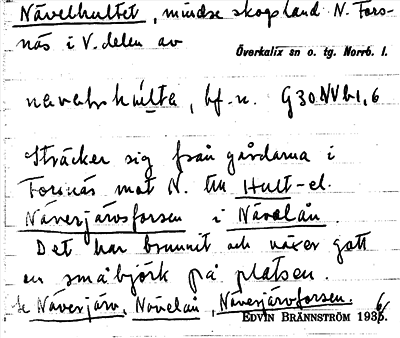 Nävelhultet, mindre skogsland N. Fors-
näs i V. delen av
Överkalix sn o. tg. Norrb. l.
bf. u. G30NVb1,6
Sträcker sig från gårdarna i
Forsnäs mot N. till Hult- el.
Näverjärvsforsen i Nävelån.
Det har brunnit och växer gott
en småbjörk på platsen.
Se Näverjärv, Nävelån, Näverjärvforsen.
EDVIN BRÄNNSTRÖM 1936.